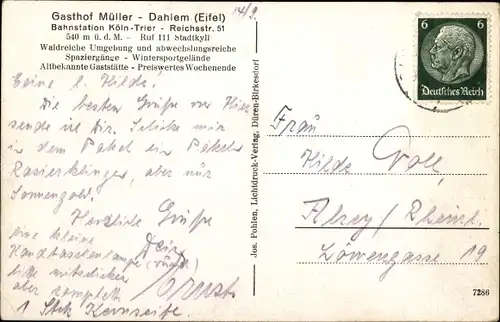 Gasthof Müller - Dahlem (Eifel)
Bahnstation Köln-Trier - Reichsstr. 51
540 m ü. d. M. - Ruf 111 Stadtkyll
Waldreiche Umgebung und abwechslungsreiche
Spaziergänge - Wintersportgelände
Altbekannte Gaststätte - Preiswertes Wochenende
14/9.
6 6
Deutsches Reich
Meine l. Hilde!
Die besten Grüße von hier
sende ich Dir. Schicke mir
in dem Paket ein Paket
Rasierklingen, aber nur
Sonnengold.
Herzliche Grüße
Dein
Ernst
eine kleine
Handtaschenlampe
bitte mitschicken
aber komplett
1 Stck Kernseife.
Jos. Pohlen, Lichtdruck-Verlag, Düren-Birkesdorf
Frau
Hilde Voll
Alzey / Rheinh.
Löwengasse 19
7286